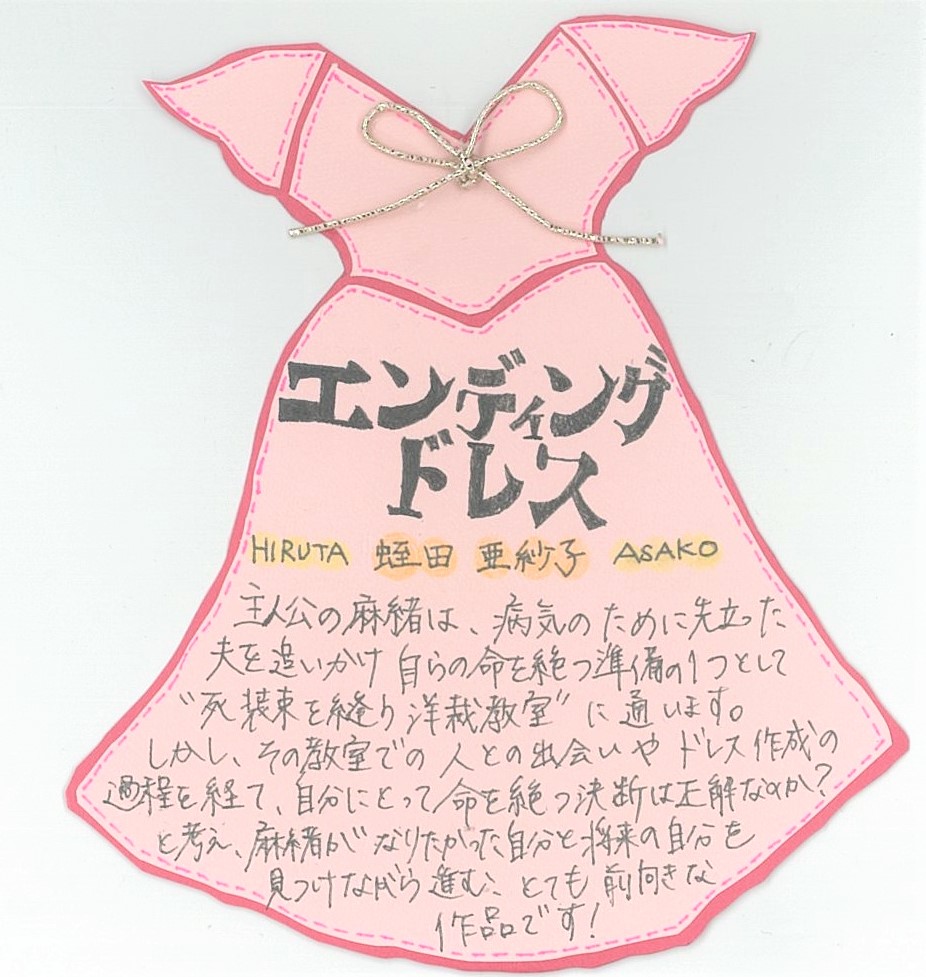 エンディング
ドレス
HIRUTA 蛭田 亜紗子 ASAKO
主人公の麻緒は、病気のために先立った
夫を追いかけ自らの命を絶つ準備の1つとして
“死装束を縫う洋裁教室”に通います。
しかし、その教室での人との出会いやドレス作成の
過程を経て、自分にとって命を絶つ決断は正解なのか?
と考え、麻緒がなりたかった自分と将来の自分を
見つけながら進む、とても前向きな
作品です!